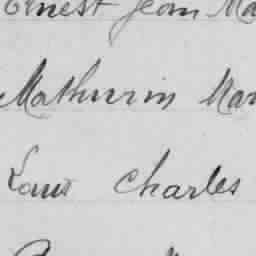 Ernest Jean Ma
Mathurin Mar
Louis Charles